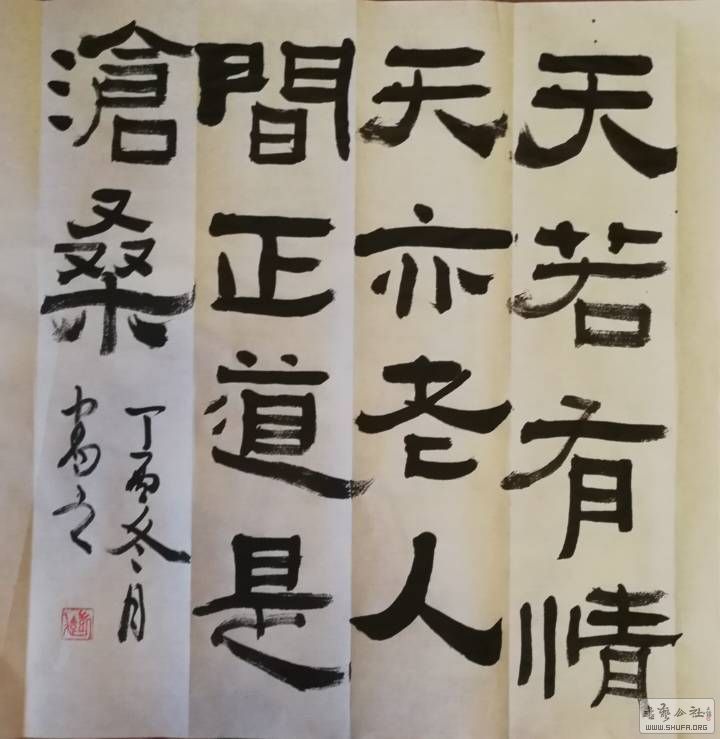 天若有情
天亦老人
間正道是
滄桑
丁酉冬月
書藝公社
WWW.SHUFA.ORG